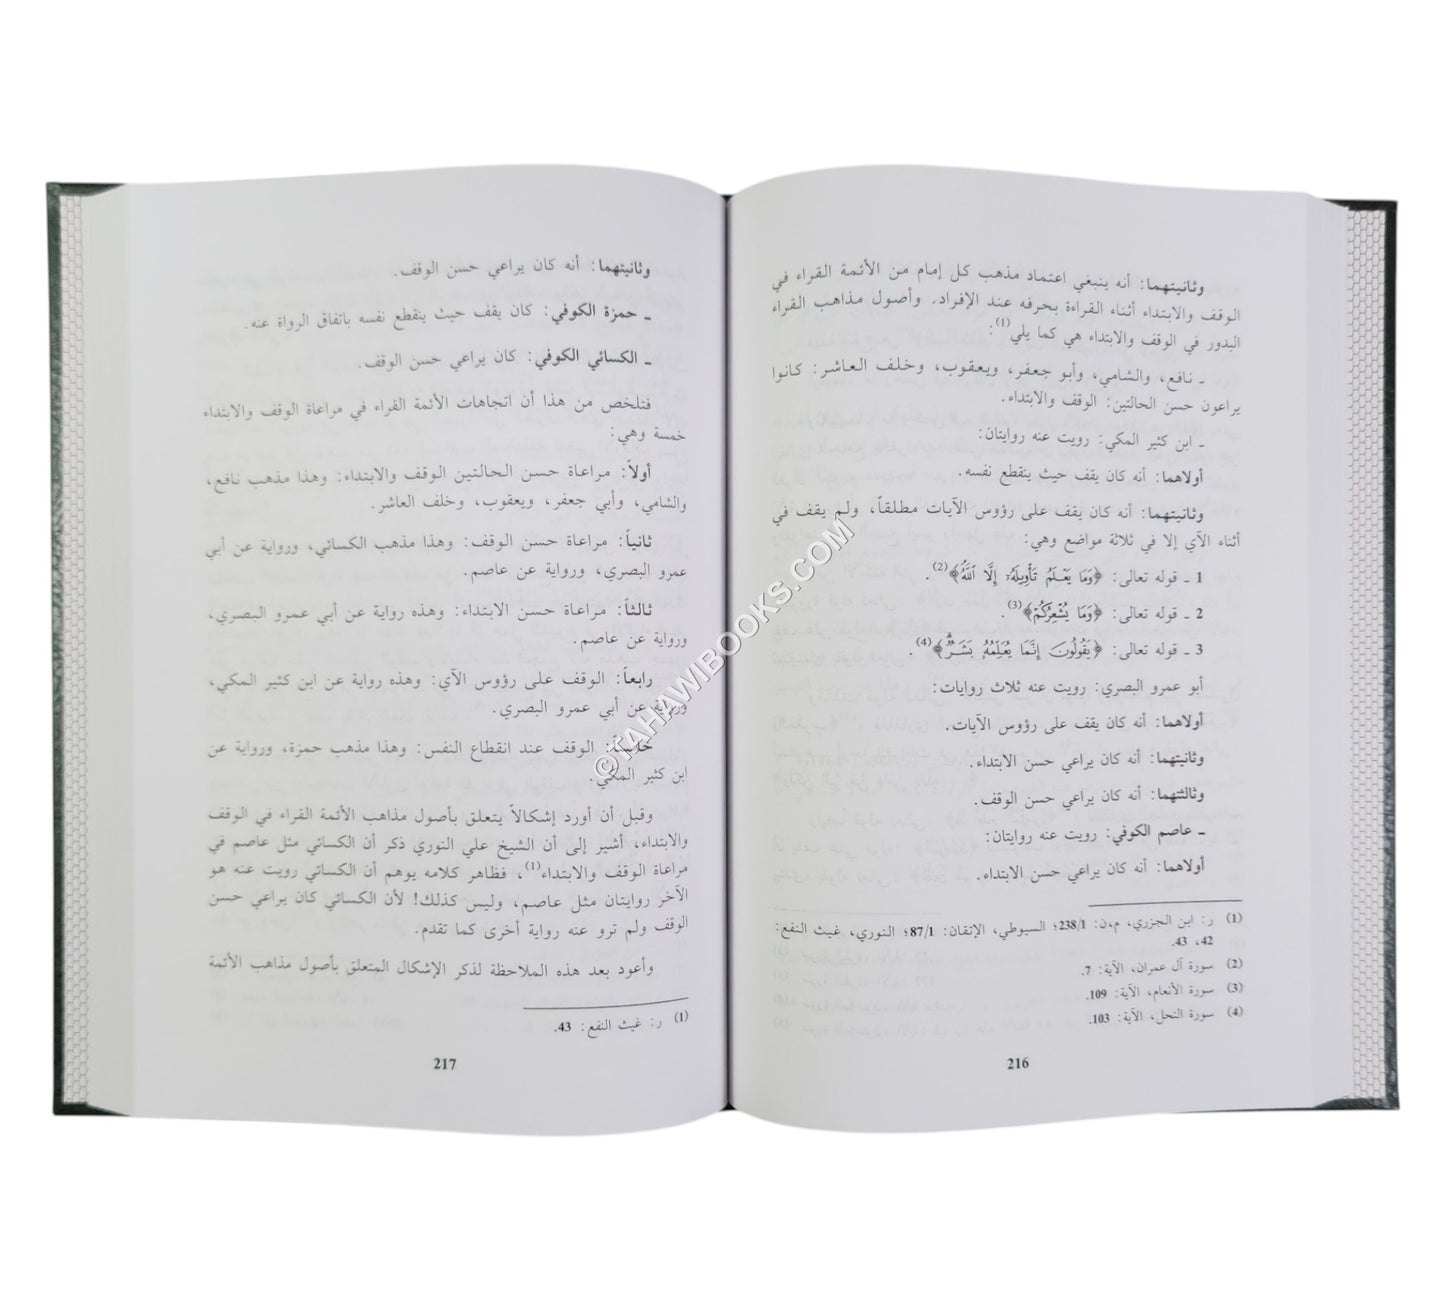 وثانيتهما: أنه ينبغي اعتماد مذهب كل إمام من الأئمة القراء في
الوقف والابتداء أثناء القراءة بحرفه عند الإفراد. وأصول مذاهب القراء
البدور في الوقف والابتداء هي كما يلي(1):
ـ نافع، والشامي، وأبو جعفر، ويعقوب، وخلف العاشر: كانوا
يراعون حسن الحالتين: الوقف والابتداء.
ـ ابن كثير المكي: رويت عنه روايتان:
أولاهما: أنه كان يقف حيث ينقطع نفسه.
وثانيتهما: أنه كان يقف على رؤوس الآيات مطلقاً، ولم يقف في
أثناء الآي إلا في ثلاثة مواضع وهي:
1 ـ قوله تعالى: ﴿وَمَا يَعْلَمُ تَأْوِيلَهُۥٓ إِلَّا ٱللَّهُ﴾(2).
2 ـ قوله تعالى: ﴿وَمَا يُشْعِرُكُمْ﴾(3).
3 ـ قوله تعالى: ﴿يَقُولُونَ إِنَّمَا يُعَلِّمُهُۥ بَشَرٌ﴾(4).
أبو عمرو البصري: رويت عنه ثلاث روايات:
أولاهما: أنه كان يقف على رؤوس الآيات.
وثانيتهما: أنه كان يراعي حسن الابتداء.
وثالثتهما: أنه كان يراعي حسن الوقف.
ـ عاصم الكوفي: رويت عنه روايتان:
أولاهما: أنه كان يراعي حسن الابتداء.
(1) ر: ابن الجزري، م،ن: 238/1؛ السيوطي، الإتقان: 87/1؛ النوري، غيث النفع:
42، 43.
(2) سورة آل عمران، الآية: 7.
(3) سورة الأنعام، الآية: 109.
(4) سورة النحل، الآية: 103.
216
وثانيتهما: أنه كان يراعي حسن الوقف.
ـ حمزة الكوفي: كان يقف حيث ينقطع نفسه باتفاق الرواة عنه.
ـ الكسائي الكوفي: كان يراعي حسن الوقف.
فتلخص من هذا أن اتجاهات الأئمة القراء في مراعاة الوقف والابتداء
خمسة وهي:
أولاً: مراعاة حسن الحالتين الوقف والابتداء: وهذا مذهب نافع،
والشامي، وأبي جعفر، ويعقوب، وخلف العاشر.
ثانياً: مراعاة حسن الوقف: وهذا مذهب الكسائي، ورواية عن أبي
عمرو البصري، ورواية عن عاصم.
ثالثاً: مراعاة حسن الابتداء: وهذه رواية عن أبي عمرو البصري،
ورواية عن عاصم.
رابعاً: الوقف على رؤوس الآي: وهذه رواية عن ابن كثير المكي،
ورواية عن أبي عمرو البصري.
خامساً: الوقف عند انقطاع النفس: وهذا مذهب حمزة، ورواية عن
ابن كثير المكي.
وقبل أن أورد إشكالاً يتعلق بأصول مذاهب الأئمة القراء في الوقف
والابتداء، أشير إلى أن الشيخ علي النوري ذكر أن الكسائي مثل عاصم في
مراعاة الوقف والابتداء(1)، فظاهر كلامه يوهم أن الكسائي رويت عنه هو
الآخر روايتان مثل عاصم، وليس كذلك! لأن الكسائي كان يراعي حسن
الوقف ولم ترو عنه رواية أخرى كما تقدم.
وأعود بعد هذه الملاحظة لذكر الإشكال المتعلق بأصول مذاهب الأئمة
(1) ر: غيث النفع: 43.
217
©TAHAWIBOOKS.COM